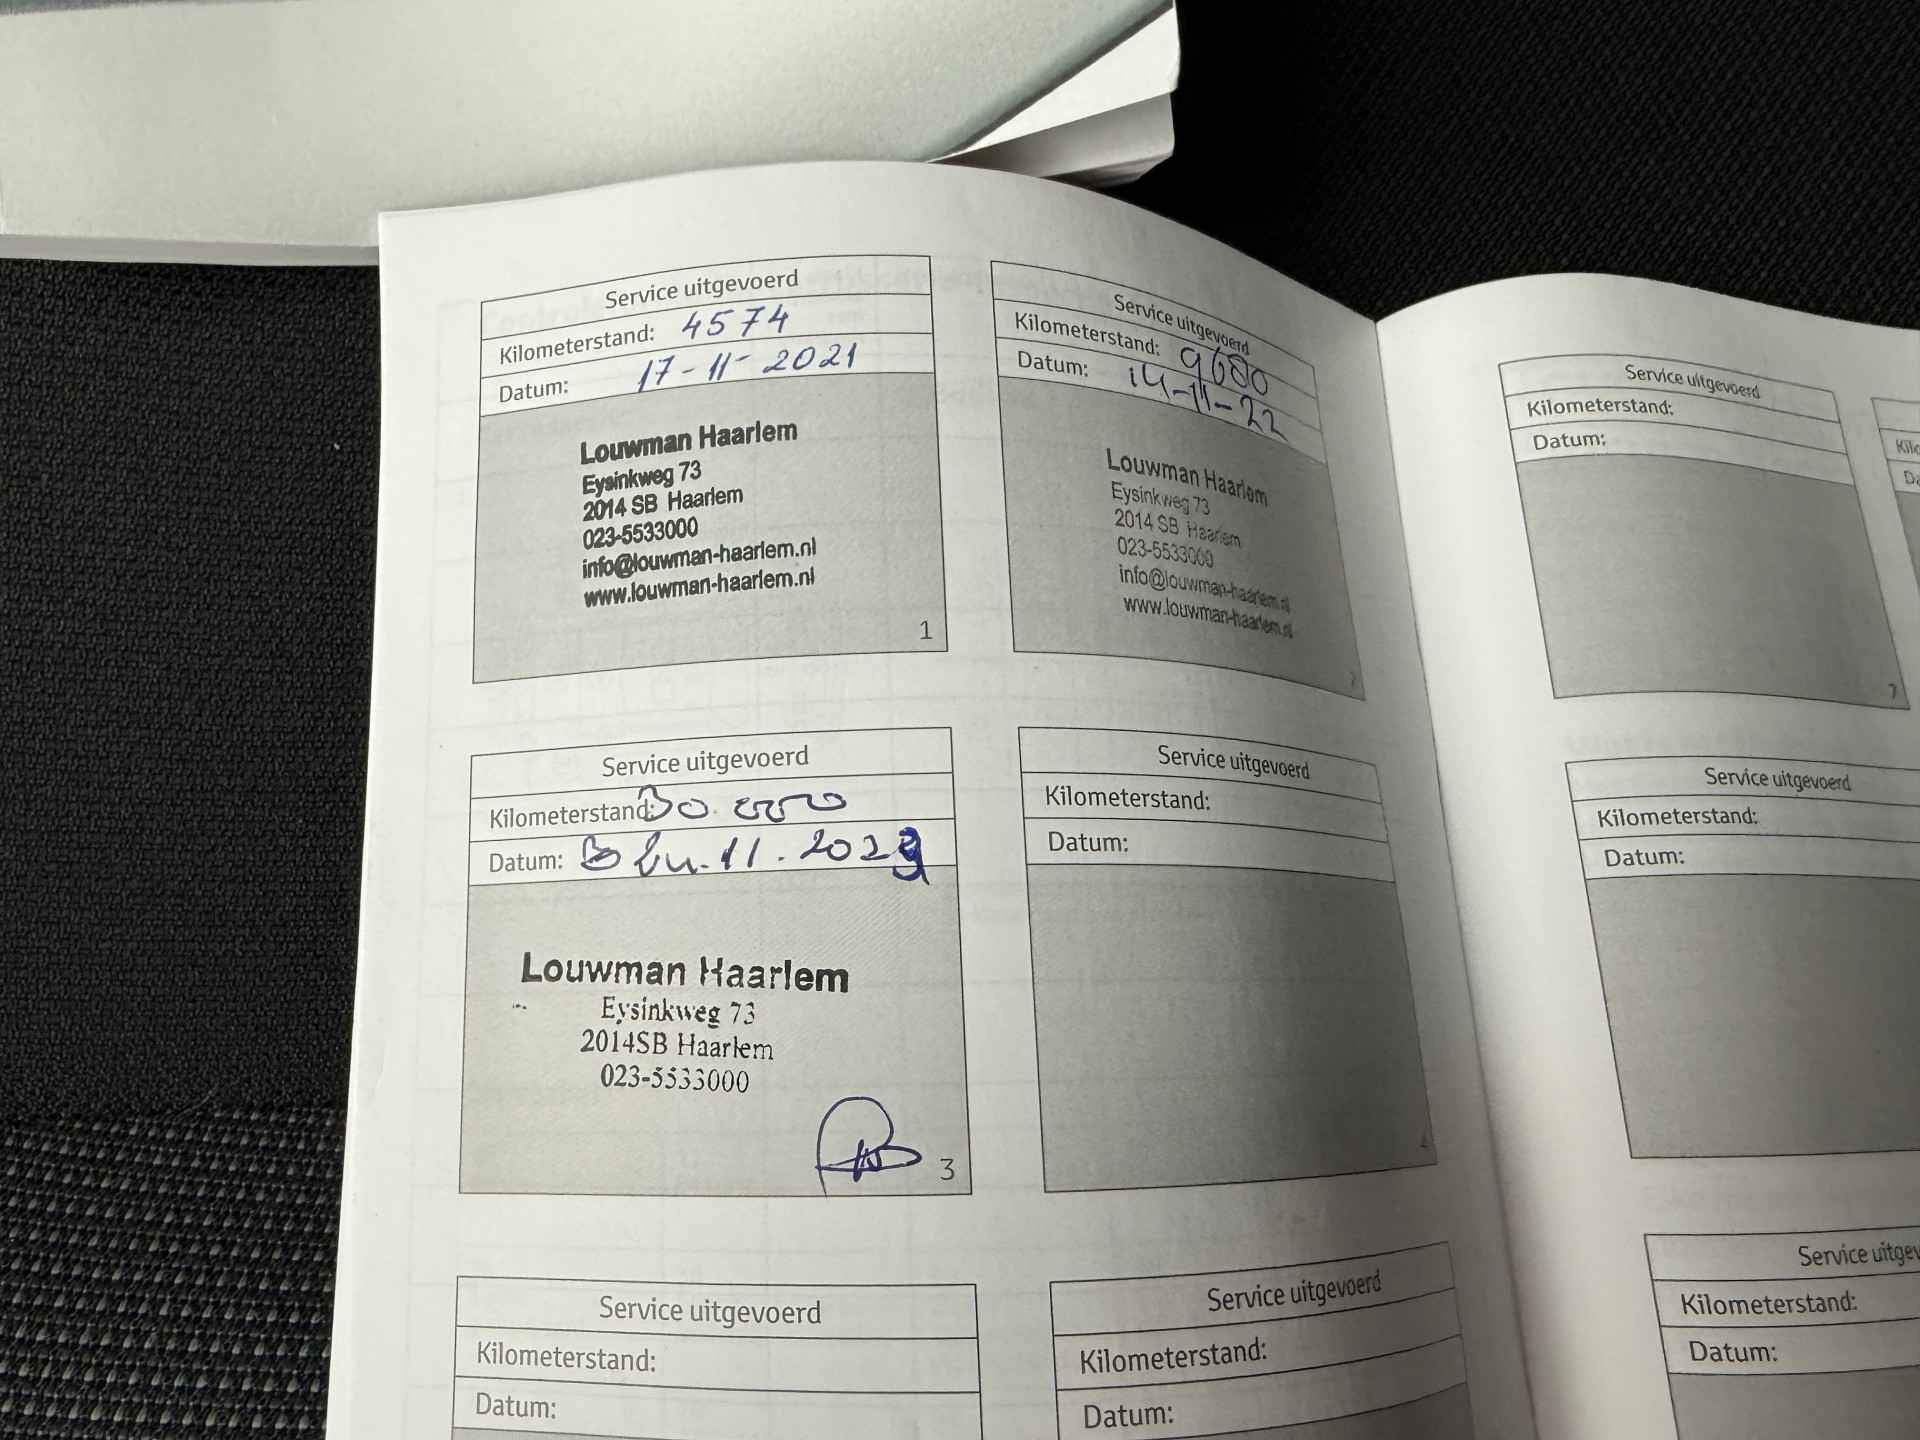 Service uitgevoerd
Kilometerstand: 4574
Datum: 17-11-2021
Louwman Haarlem
Eysinkweg 73
2014 SB Haarlem
023-5533000
info@louwman-haarlem.nl
www.louwman-haarlem.nl
1
Service uitgevoerd
Kilometerstand: 9680
Datum: 14-11-22
Louwman Haarlem
Eysinkweg 73
2014 SB Haarlem
023-5533000
info@louwman-haarlem.nl
www.louwman-haarlem.nl
2
Service uitgevoerd
Kilometerstand:
Datum: 11.2023
Louwman Haarlem
Eysinkweg 73
2014SB Haarlem
023-5533000
3
Service uitgevoerd
Kilometerstand:
Datum:
4
Service uitgevoerd
Kilometerstand:
Datum:
Service uitgevoerd
Kilometerstand:
Datum:
Service uitgevoerd
Kilometerstand:
Datum:
7
Service uitgevoerd
Kilometerstand:
Datum:
Service uitgev
Kilometerstand:
Datum: